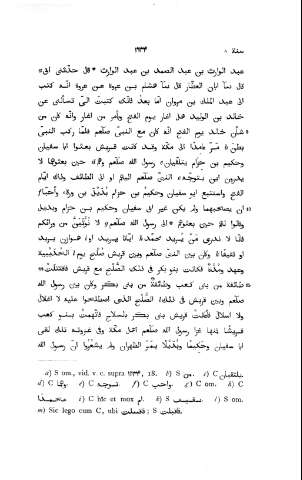 سنة ٨ ١٦٣٤
عبد الوارث بن عبد الصمد بن عبد الوارث * قال حدّثنى ابى
قال ثنا ابان العطّار قال ثنا هشام بن عروة عن عروة انه كتب
الى عبد الملك بن مروان امّا بعد فانّك كتبت الىّ تسألنى عن
خالد بن الوليد هل اغار يوم الفتح وبأمر من اغار وانه كان من
شأن خالد يوم الفتح انه كان مع النبىّ صلّعم فلمّا ركب النبىّ
بطن مرّ عامدًا الى مكّة وقد كانت قريش بعثوا ابا سفيان
وحكيم بن حزام يتلقّيان رسول الله صلّعم وهم حين بعثوهما لا
يدرون اين يتوجّه النبىّ صلّعم اليهم او الى الطائف وذاك ايّام
الفتح واستتبع ابو سفيان وحكيم بن حزام بُدَيْل بن ورقاء وأحبّا
ان يصاحبهما ولم يكن غير ابى سفيان وحكيم بن حزام وبديل
وقالوا لهم حين بعثوهم الى رسول الله صلّعم لا نُؤْتَيَنّ من ورائكم
فانّا لا ندرى مَنْ يريد محمّد ايّانا يريد او هوازن يريد
او ثقيفًا وكان بين النبى صلّعم وبين قريش صُلْح يوم الحُدَيْبِيَة
وعهد ومُدّة فكانت بنو بكر فى ذلك الصُّلْح مع قريش فاقتتلت
طائفة من بنى كعب وطائفة من بنى بكر وكان بين رسول الله
صلّعم وبين قريش فى ذلك الصُّلْح الذى اصطلحوا عليه لا اغلال
ولا اسلال فأعانت قريش بنى بكر بالسلاح فاتّهمت بنو كعب
قريشًا فمنها غزا رسول الله صلّعم اهل مكّة وفى غزوته تلك لقى
ابا سفيان وحكيمًا وبُدَيْلًا بمَرّ الظهران ولم يشعروا انّ رسول الله
a) S om., vid. v. c. supra ١٦٣٤, 18. b) S من. c) C يلتقيان.
d) C وانما. e) C نتوجه. f) C واحب. g) C om. h) C
محمدا. i) C hic et mox ام. k) S سفيف. l) S om.
m) Sic lego cum C, ubi فاقتتلت; S فقتلت.